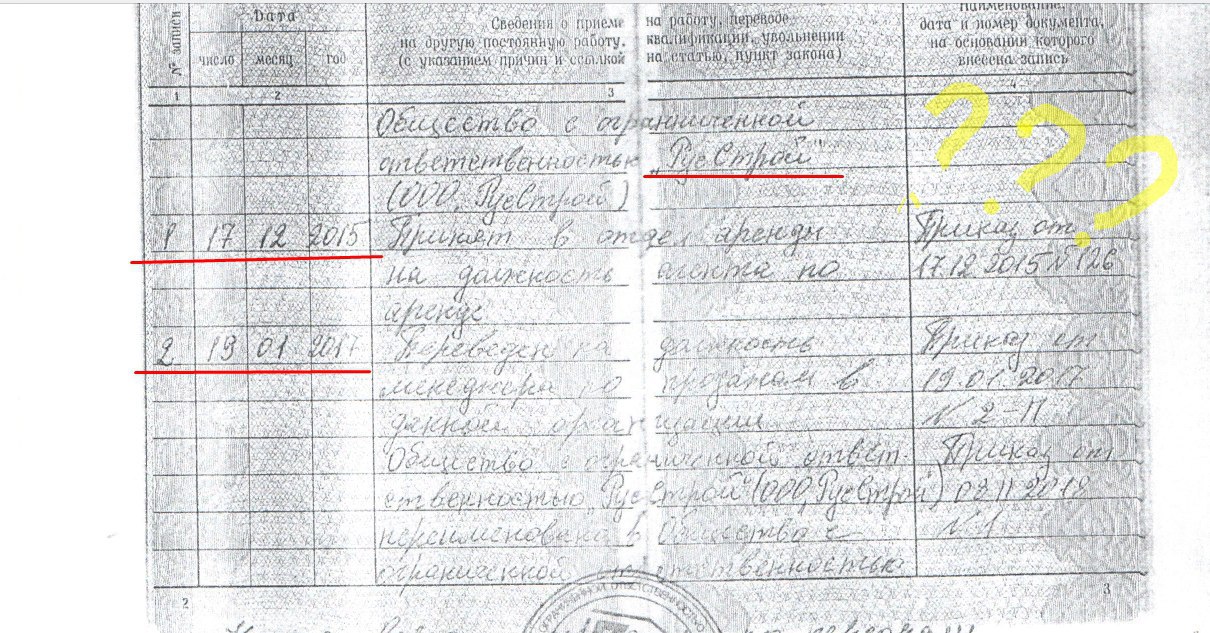 № записи
Дата
число месяц год
Сведения о приеме на работу, переводе
на другую постоянную работу, квалификации, увольнении
(с указанием причин и ссылкой на статью, пункт закона)
Наименование,
дата и номер документа,
на основании которого
внесена запись
1 2 3 4
Общество с ограниченной
ответственностью „РусСтрой"
(ООО „РусСтрой)
1 17 12 2015 Принят в отдел аренды Приказ от
на должность агента по 17.12.2015 N 126
аренде
2 19 01 2017 Переведен на должность Приказ от
менеджера по продажам в 19.01.2017
данной организации N 2-П
Общество с ограниченной ответ- Приказ от
ственностью „РусСтрой" (ООО „РусСтрой) 02.11.2018
переименовано в Общество с N 1
ограниченной ответственностью
2 3
???